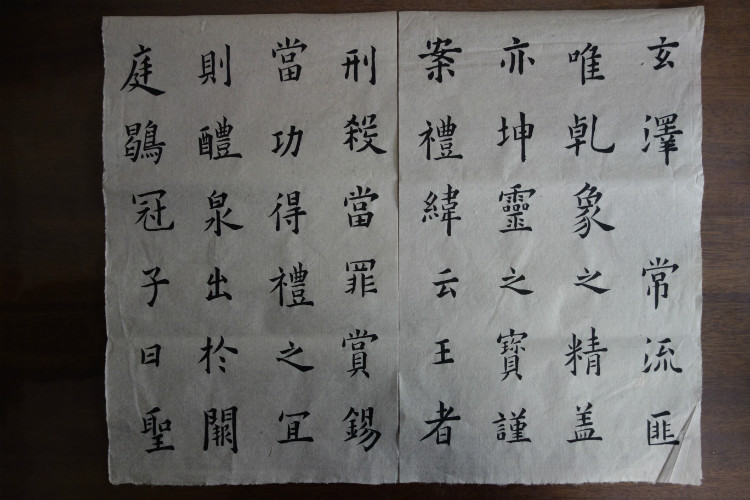 玄澤 常流匪
唯乹象之精盖
亦坤靈之寶謹
案禮緯云王者
刑殺當罪賞錫
當功得禮之冝
則醴泉出於闕
庭鶡冠子曰聖